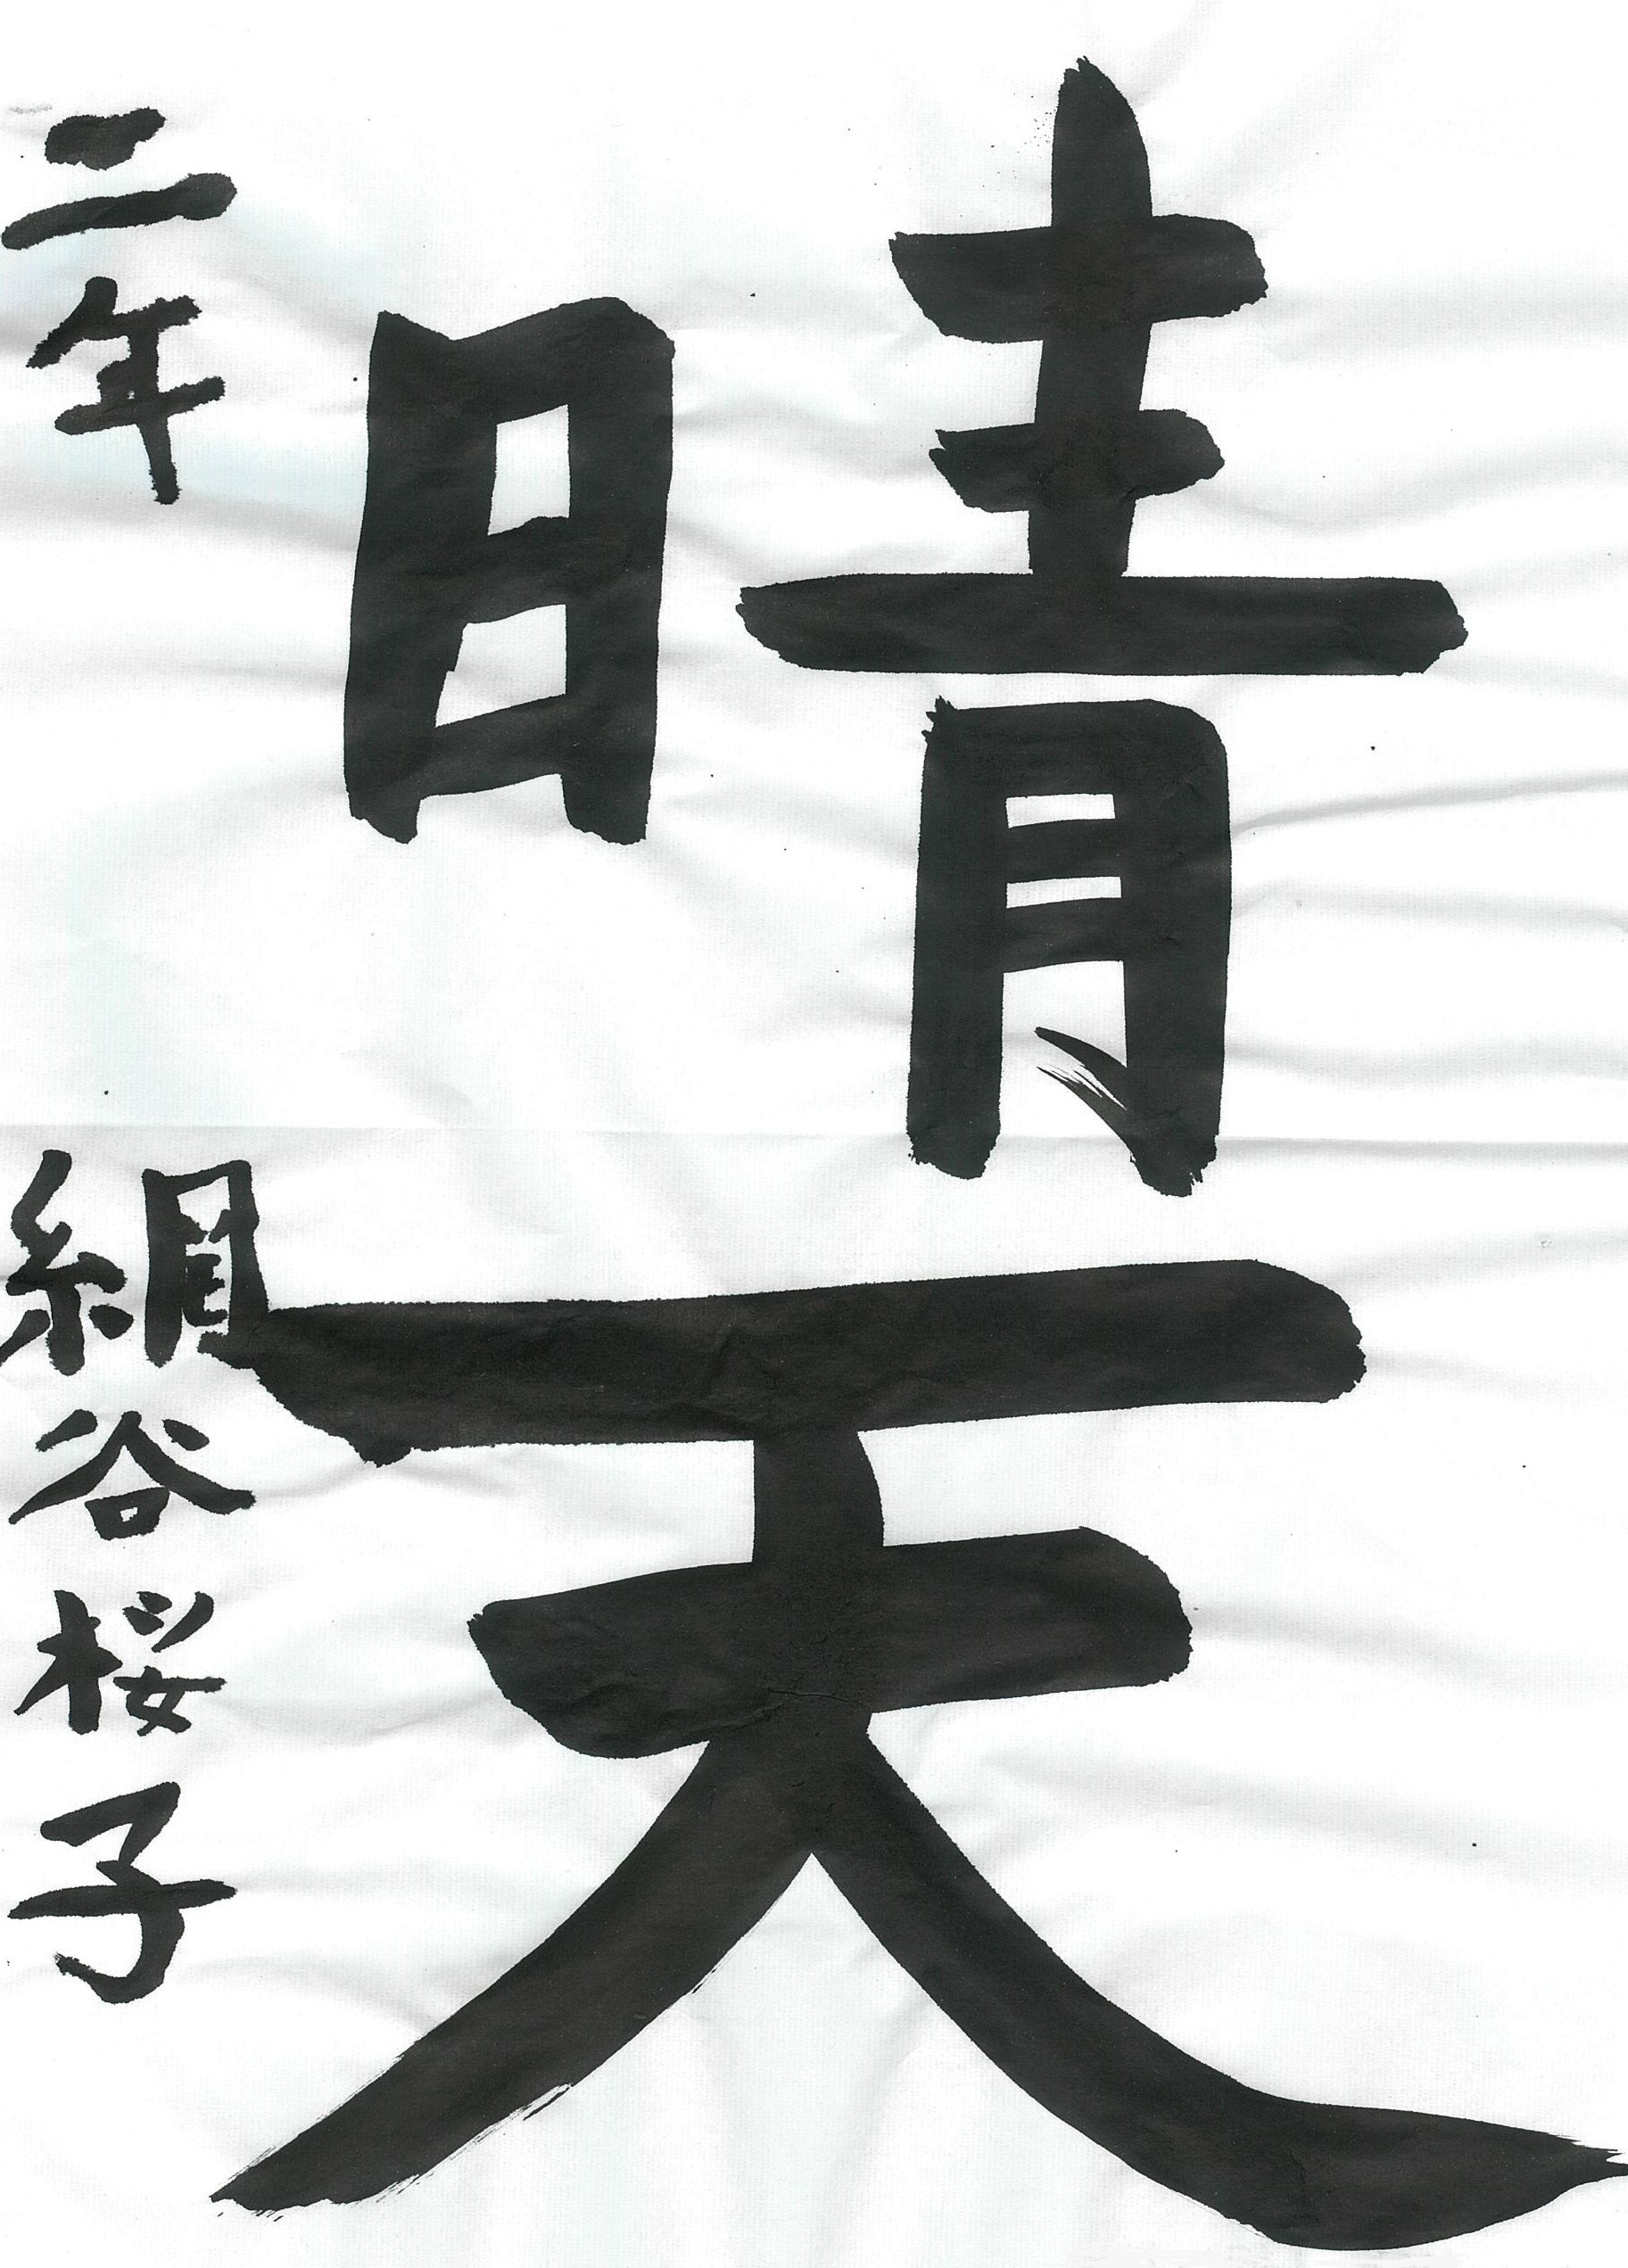 晴天
二年 網谷桜子